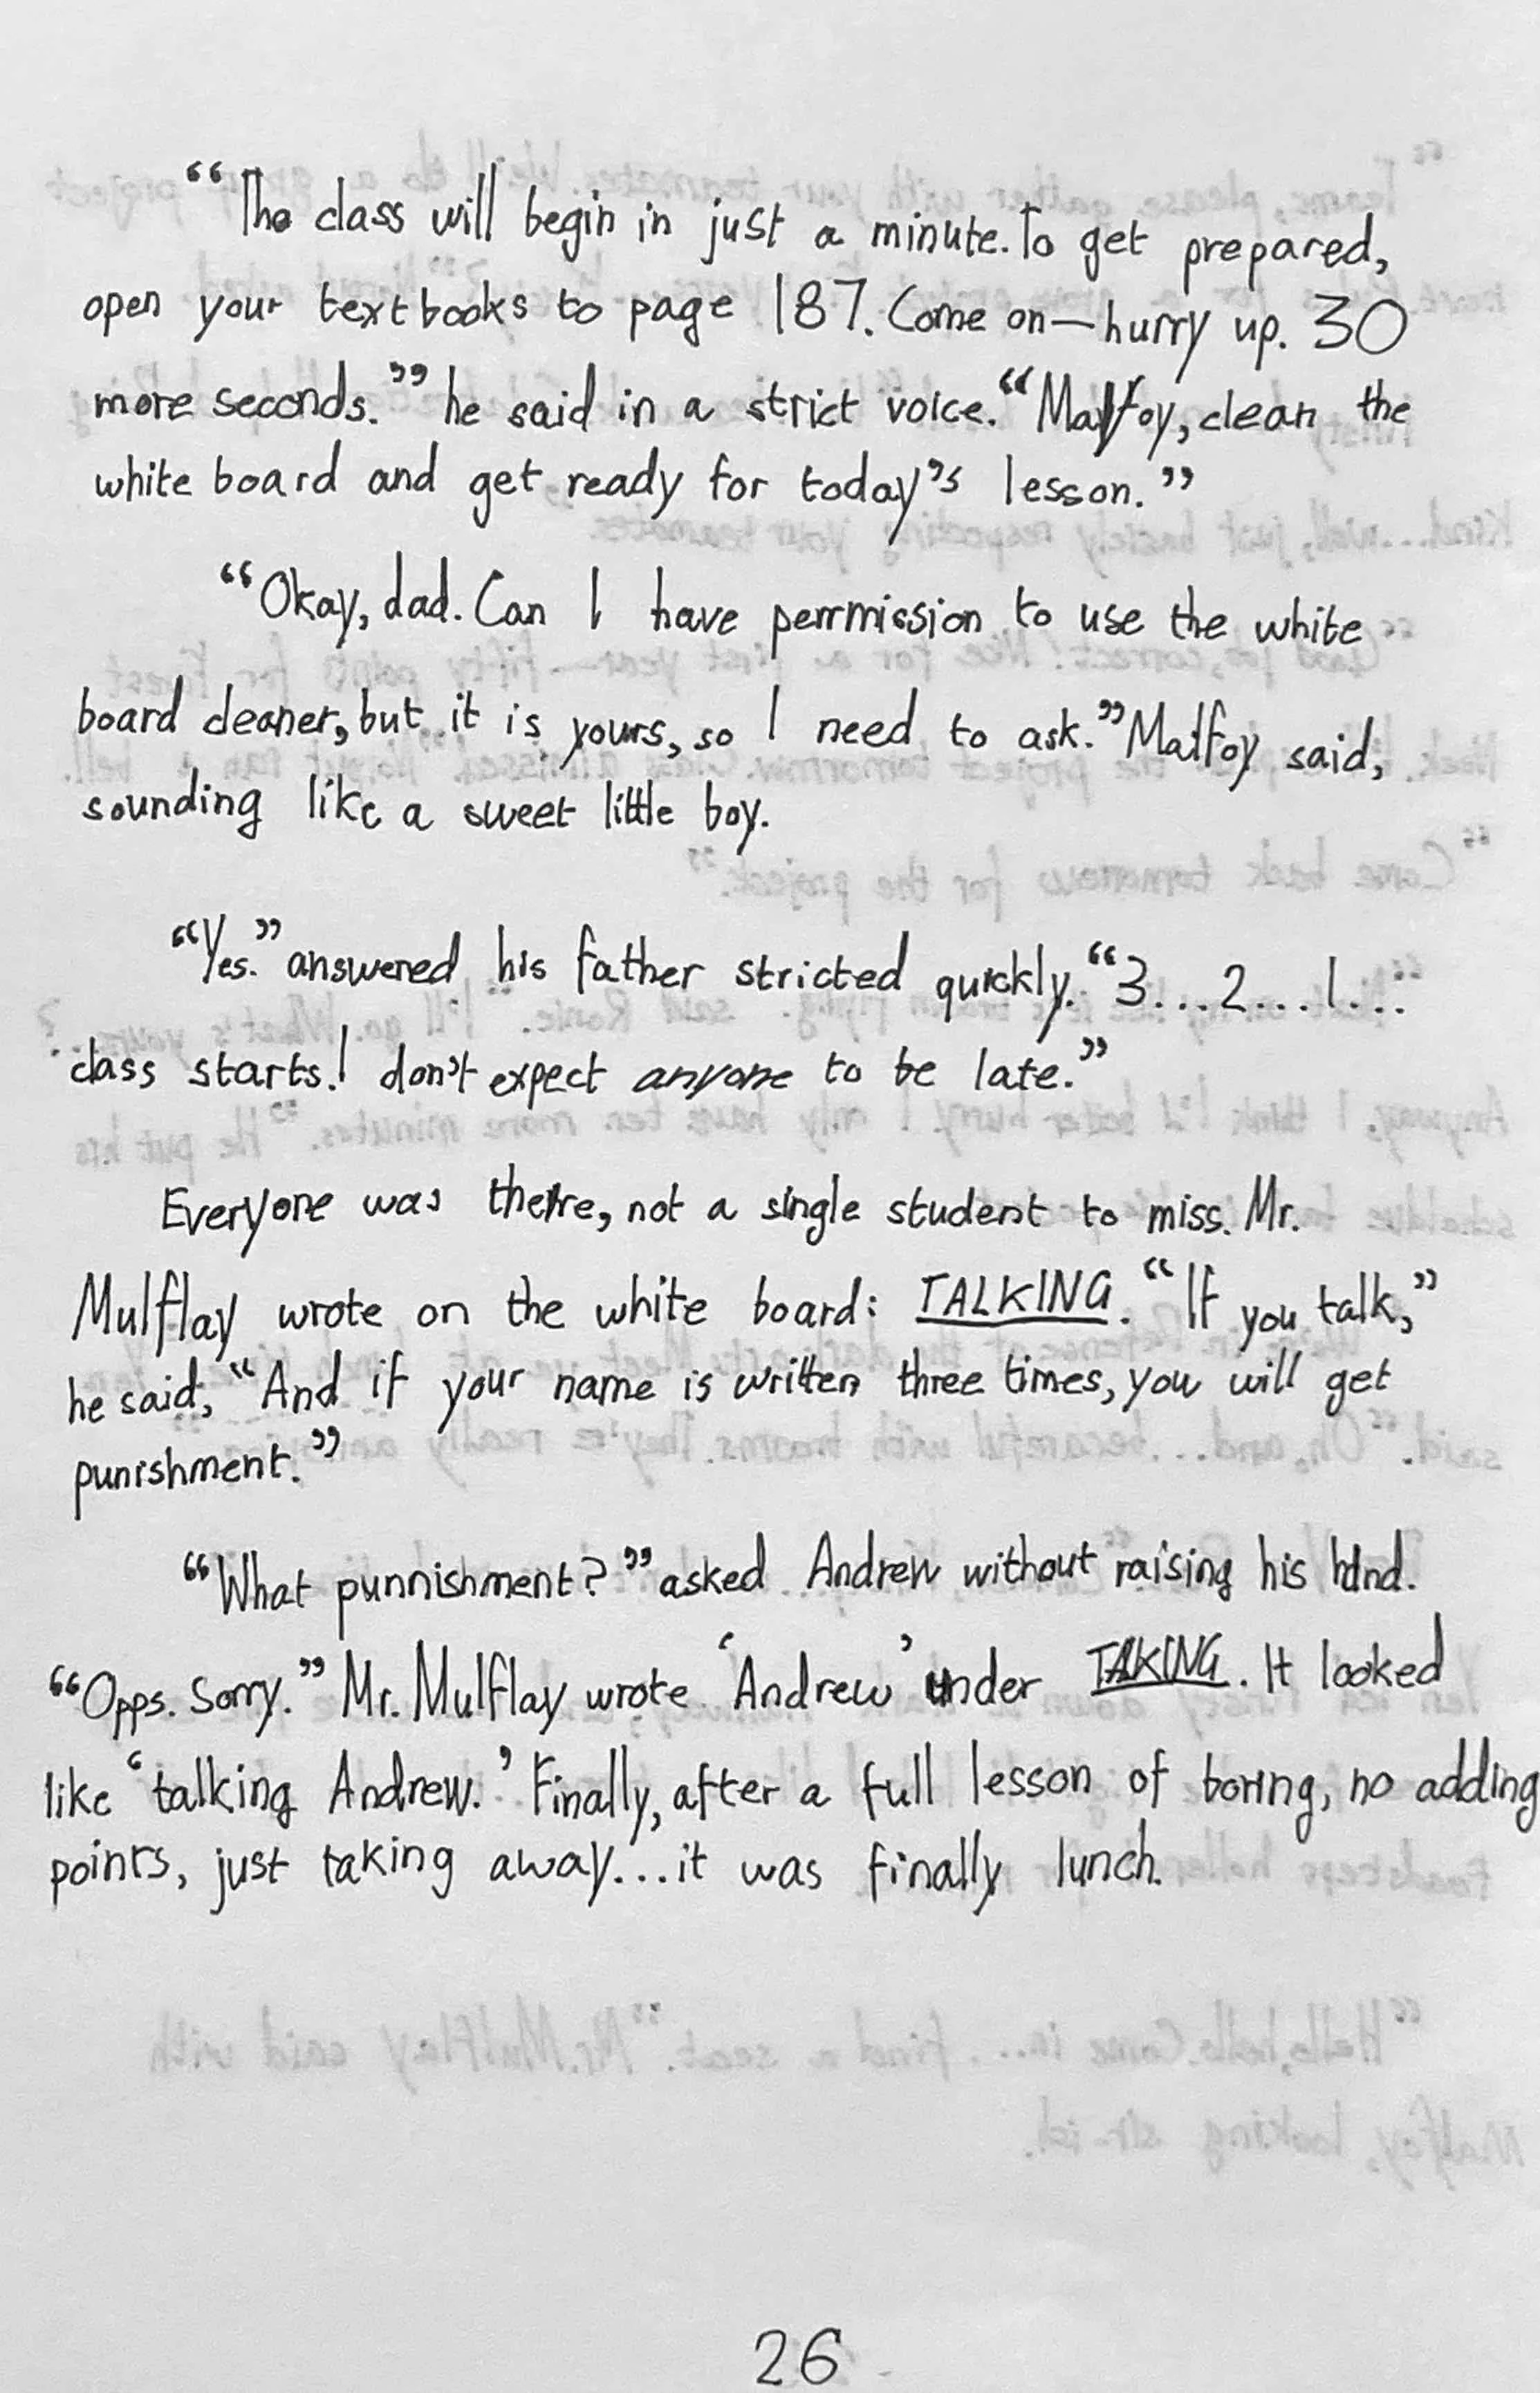 “The class will begin in just a minute. To get prepared,
open your textbooks to page 187. Come on—hurry up. 30
more seconds.” he said in a strict voice. “Malfoy, clean the
white board and get ready for today’s lesson.”
“Okay, dad. Can I have perrmission to use the white
board cleaner, but it is yours, so I need to ask.” Malfoy said,
sounding like a sweet little boy.
“Yes.” answered his father stricted quickly. “3...2...1...
class starts. I don’t expect anyone to be late.”
Everyone was there, not a single student to miss. Mr.
Mulflay wrote on the white board: TALKING. “If you talk,”
he said, “And if your name is written three times, you will get
punishment.”
“What punnishment?” asked Andrew without raising his hand.
“Opps. Sorry.” Mr. Mulflay wrote ‘Andrew’ under TALKING. It looked
like ‘talking Andrew.’ Finally, after a full lesson of boring, no adding
points, just taking away...it was finally lunch.
26